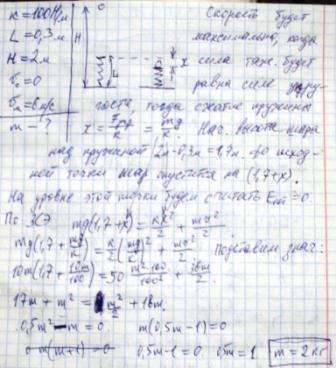 к = 100 Н/м
L = 0,3 м
H = 2 м
v₀ = 0
vₘ = 6 м/с
m - ?
H
0
L
x
Скорость будет
максимальна, когда
сила тяж. будет
равна силе упру-
гости, тогда сжатие пружины
x = Fупр/к = mg/к. Нач. высота шара
над пружиной 2м-0,3м=1,7м. До
ной точки шар опустится на (1,7+x).
На уровне этой точки будем считать Eп=0
По ЗСЭ mg(1,7+x) = кx²/2 + mv²/2
mg(1,7 + mg/к) = к/2 (mg/к)² + mv²/2 Подставим знач:
10m(1,7 + 10m/100) = 50 m²·100/100² + 36m/2
17m + m² = m²/2 + 18m.
0,5m² - m = 0. m(0,5m-1)=0
0,5m-1=0 0,5m=1 m = 2 кг